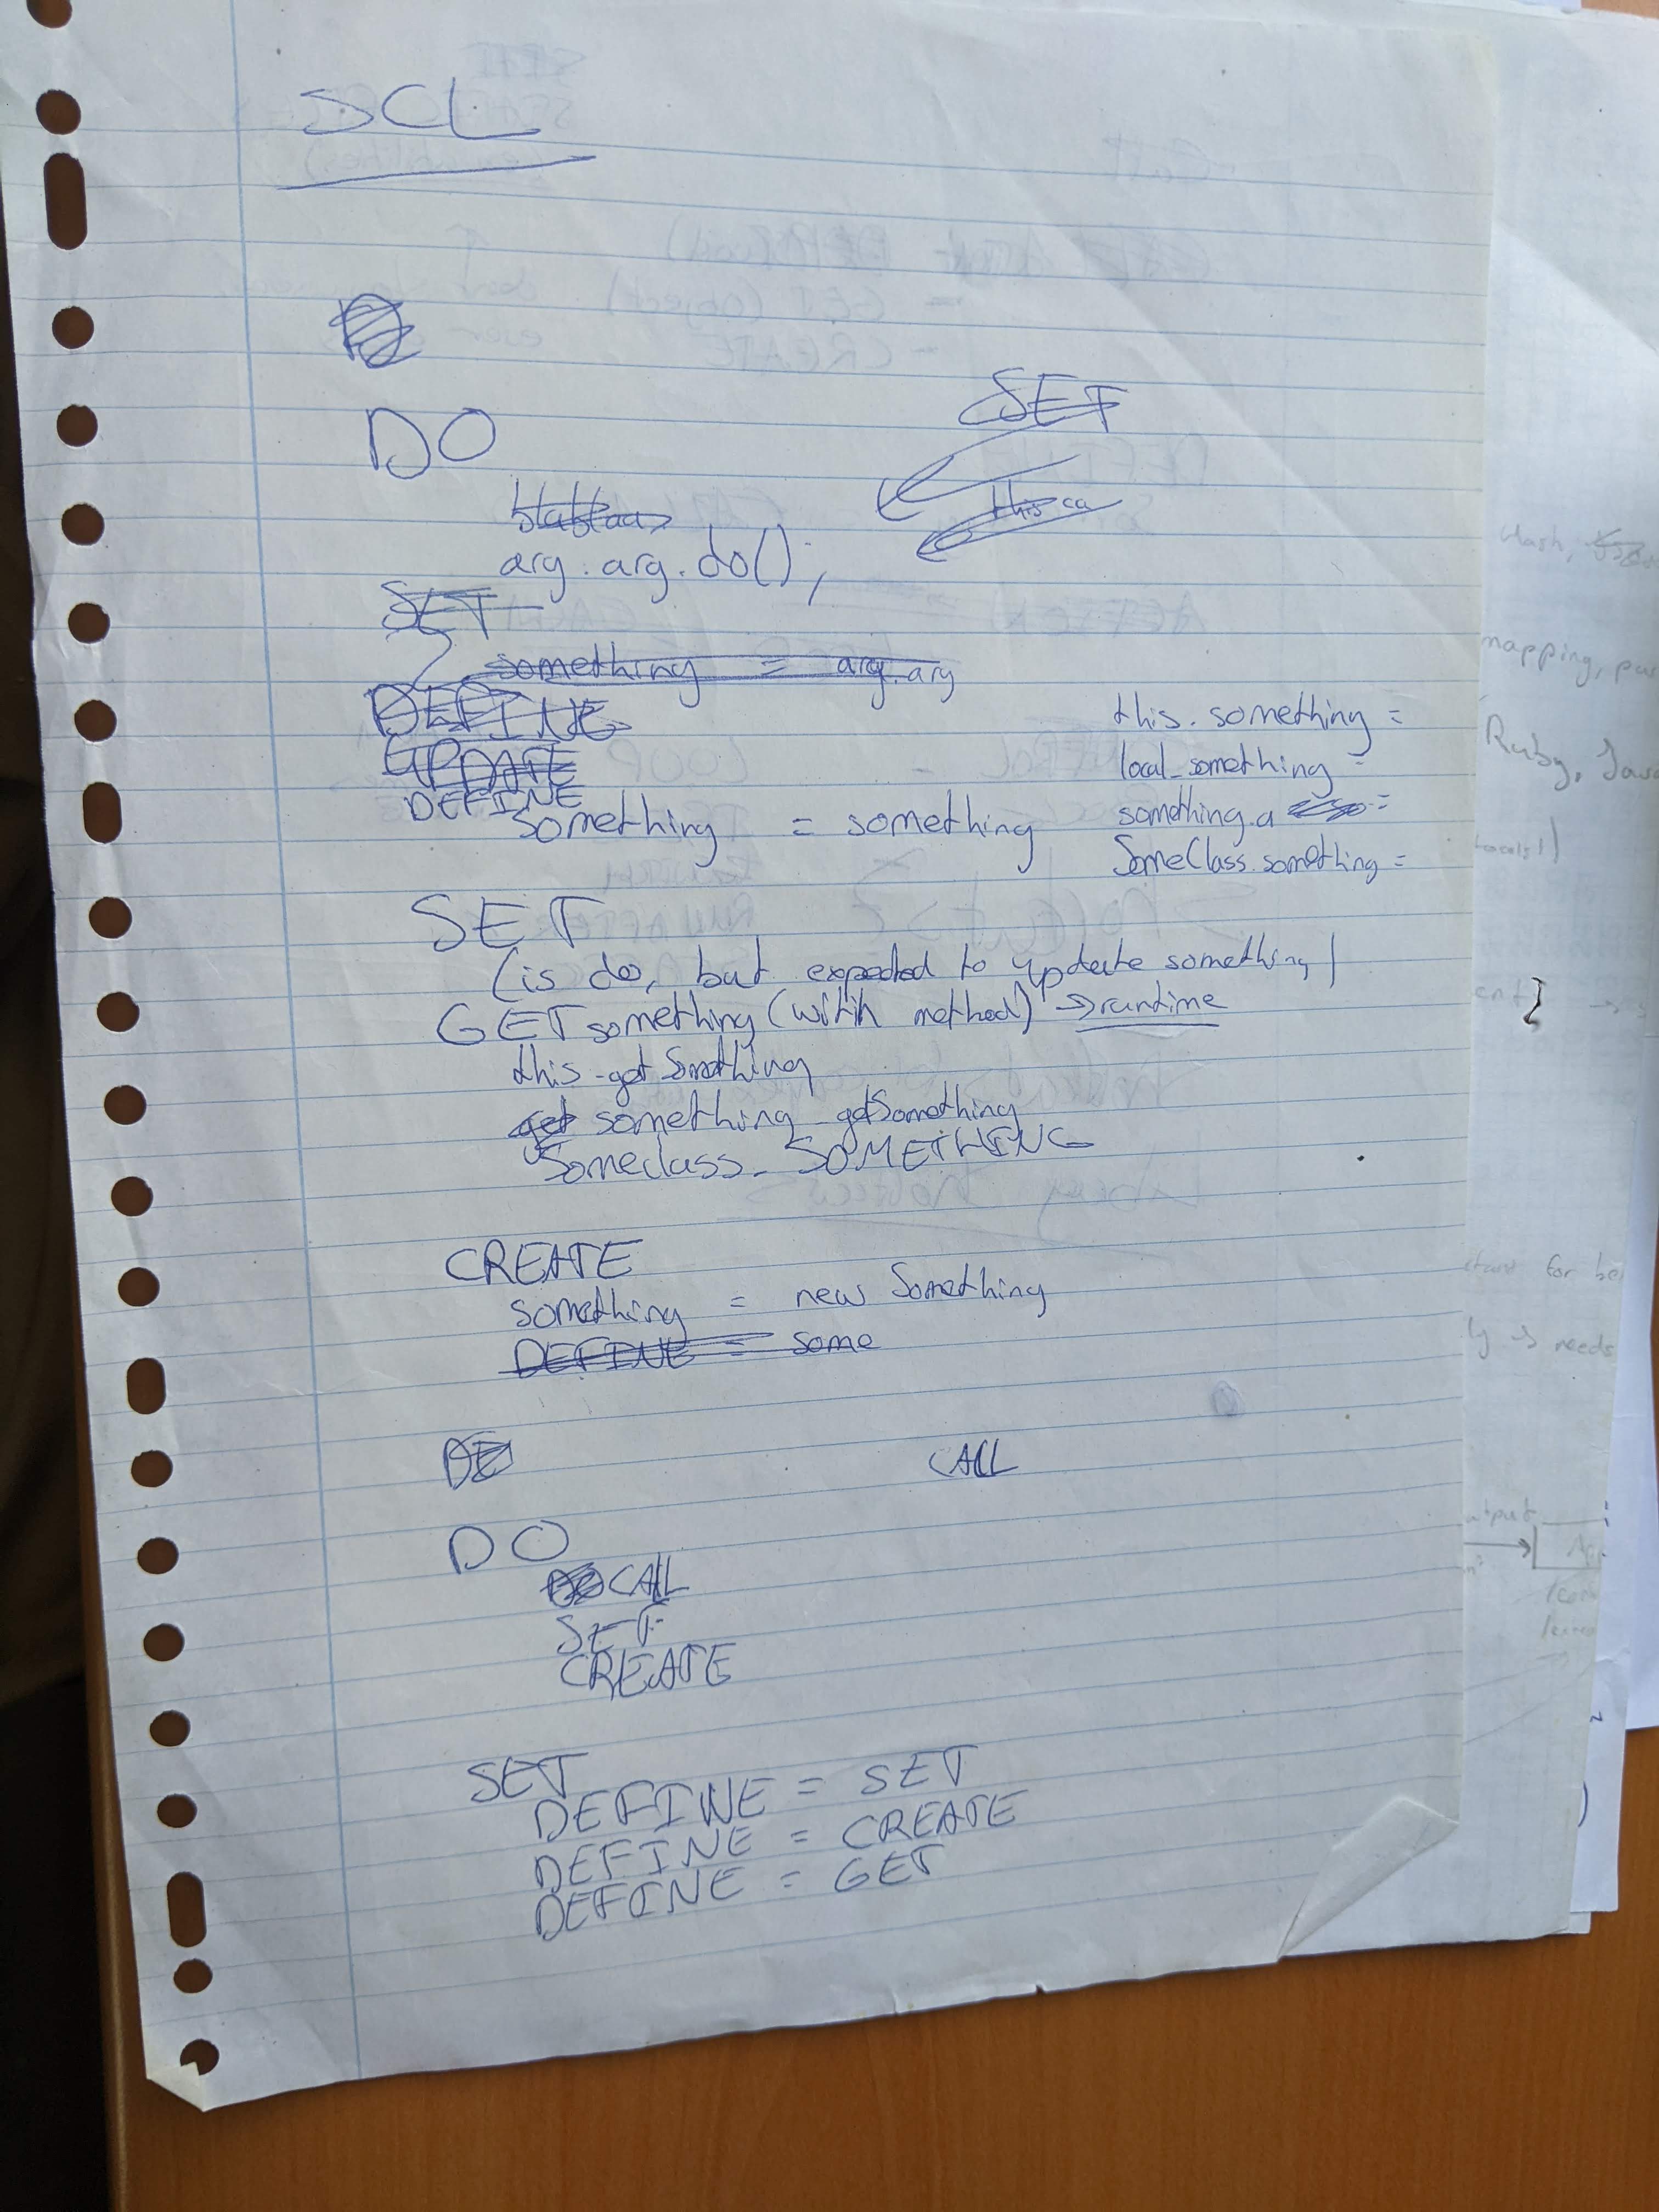 SCL
DO
SET
this ca
arg.arg.do();
SET
something = arg.arg
DEFINE
UPDATE
DEFINE
something = something
this.something =
local_something =
something.a =
SomeClass.something =
SET
(is do, but expected to update something)
GET something (within method) → runtime
this.getSomething
get something.getSomething
Someclass. SOMETHING
CREATE
something = new Something
DEFINE = some
CALL
DO
CALL
SET
CREATE
SET
DEFINE = SET
DEFINE = CREATE
DEFINE = GET
Hash,
mapping,
Ruby,
for
→ needs